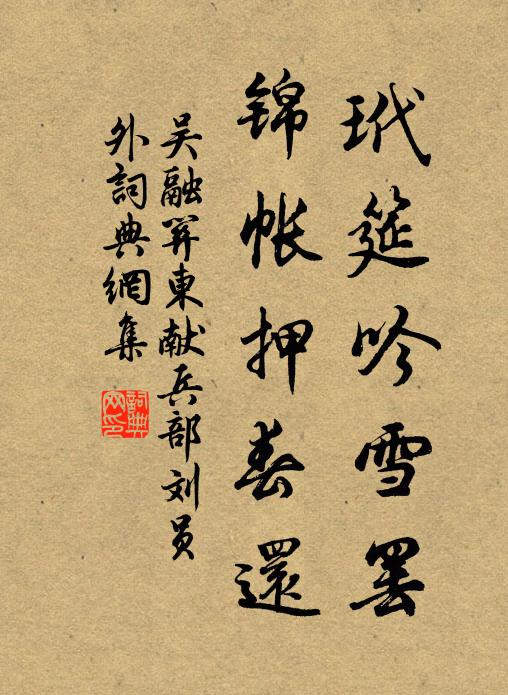 玳筵吟雪罢
锦帐押春還
吴融関東献兵部刘员
外詞典網集
詞典
网印